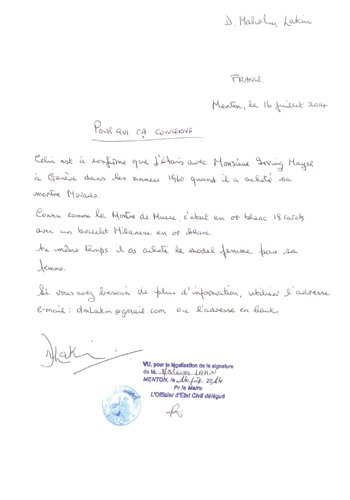 D. Malcolm Lakin
FRANCE
Menton, le 16 juillet 2014
POUR QUI ÇA CONCERNE
Celui est à confirme que j'étais avec Monsieur Irving
à Genève dans les années 1960 quand il a acheté sa
montre Movado.
Connu comme la Montre de Musee, c'était en or blanc 18 carats
avec un bracelet Milanese en or blanc.
Au même temps il as acheté le model femme pour sa
femme.
Si vous avez besoin de plus d'information, utiliser l'adresse
e-mail: dmlakin@gmail.com ou l'adresse en haut.
DLakin
VU, pour la légalisation de la signature
de M. Malcolm LAKIN
MENTON, le 16.7.2014
Pr le Maire
L'Officier d'Etat Civil délégué